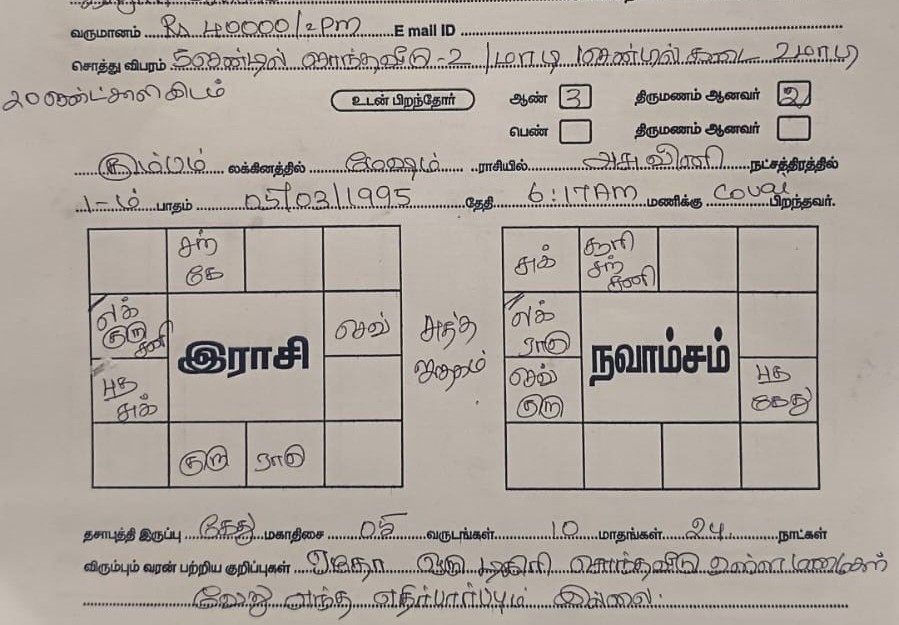 வருமானம் Rs 40000/2Pm E mail ID
சொத்து விபரம் 5சென்டில் சொந்தவீடு-2 /மாடி 1சென்டில் கடை 2மாடி
20 சென்ட் காலி இடம்
உடன் பிறந்தோர் ஆண் 3 திருமணம் ஆனவர் 2
பெண் திருமணம் ஆனவர்
கும்பம் லக்கினத்தில் மேஷம் ராசியில் அசுவினி நட்சத்திரத்தில்
1-ம் பாதம் 05/03/1995 தேதி 6:17AM மணிக்கு Covai பிறந்தவர்.
சந் சுக் சூரி
கே சந்
சனி
லக் லக்
சனி செவ் சுத்த ராகு
இராசி ஜாதகம் நவாம்சம்
புத செவ் புத
சுக் குரு கேது
குரு ராகு
தசாபுத்தி இருப்பு கேது மகாதிசை 05 வருடங்கள் 10 மாதங்கள் 24 நாட்கள்
விரும்பும் வரன் பற்றிய குறிப்புகள் ஏதோ ஒரு டிகிரி சொந்தவீடு உள்ள மணமகள்
வேறு எந்த எதிர்பார்ப்பும் இல்லை.